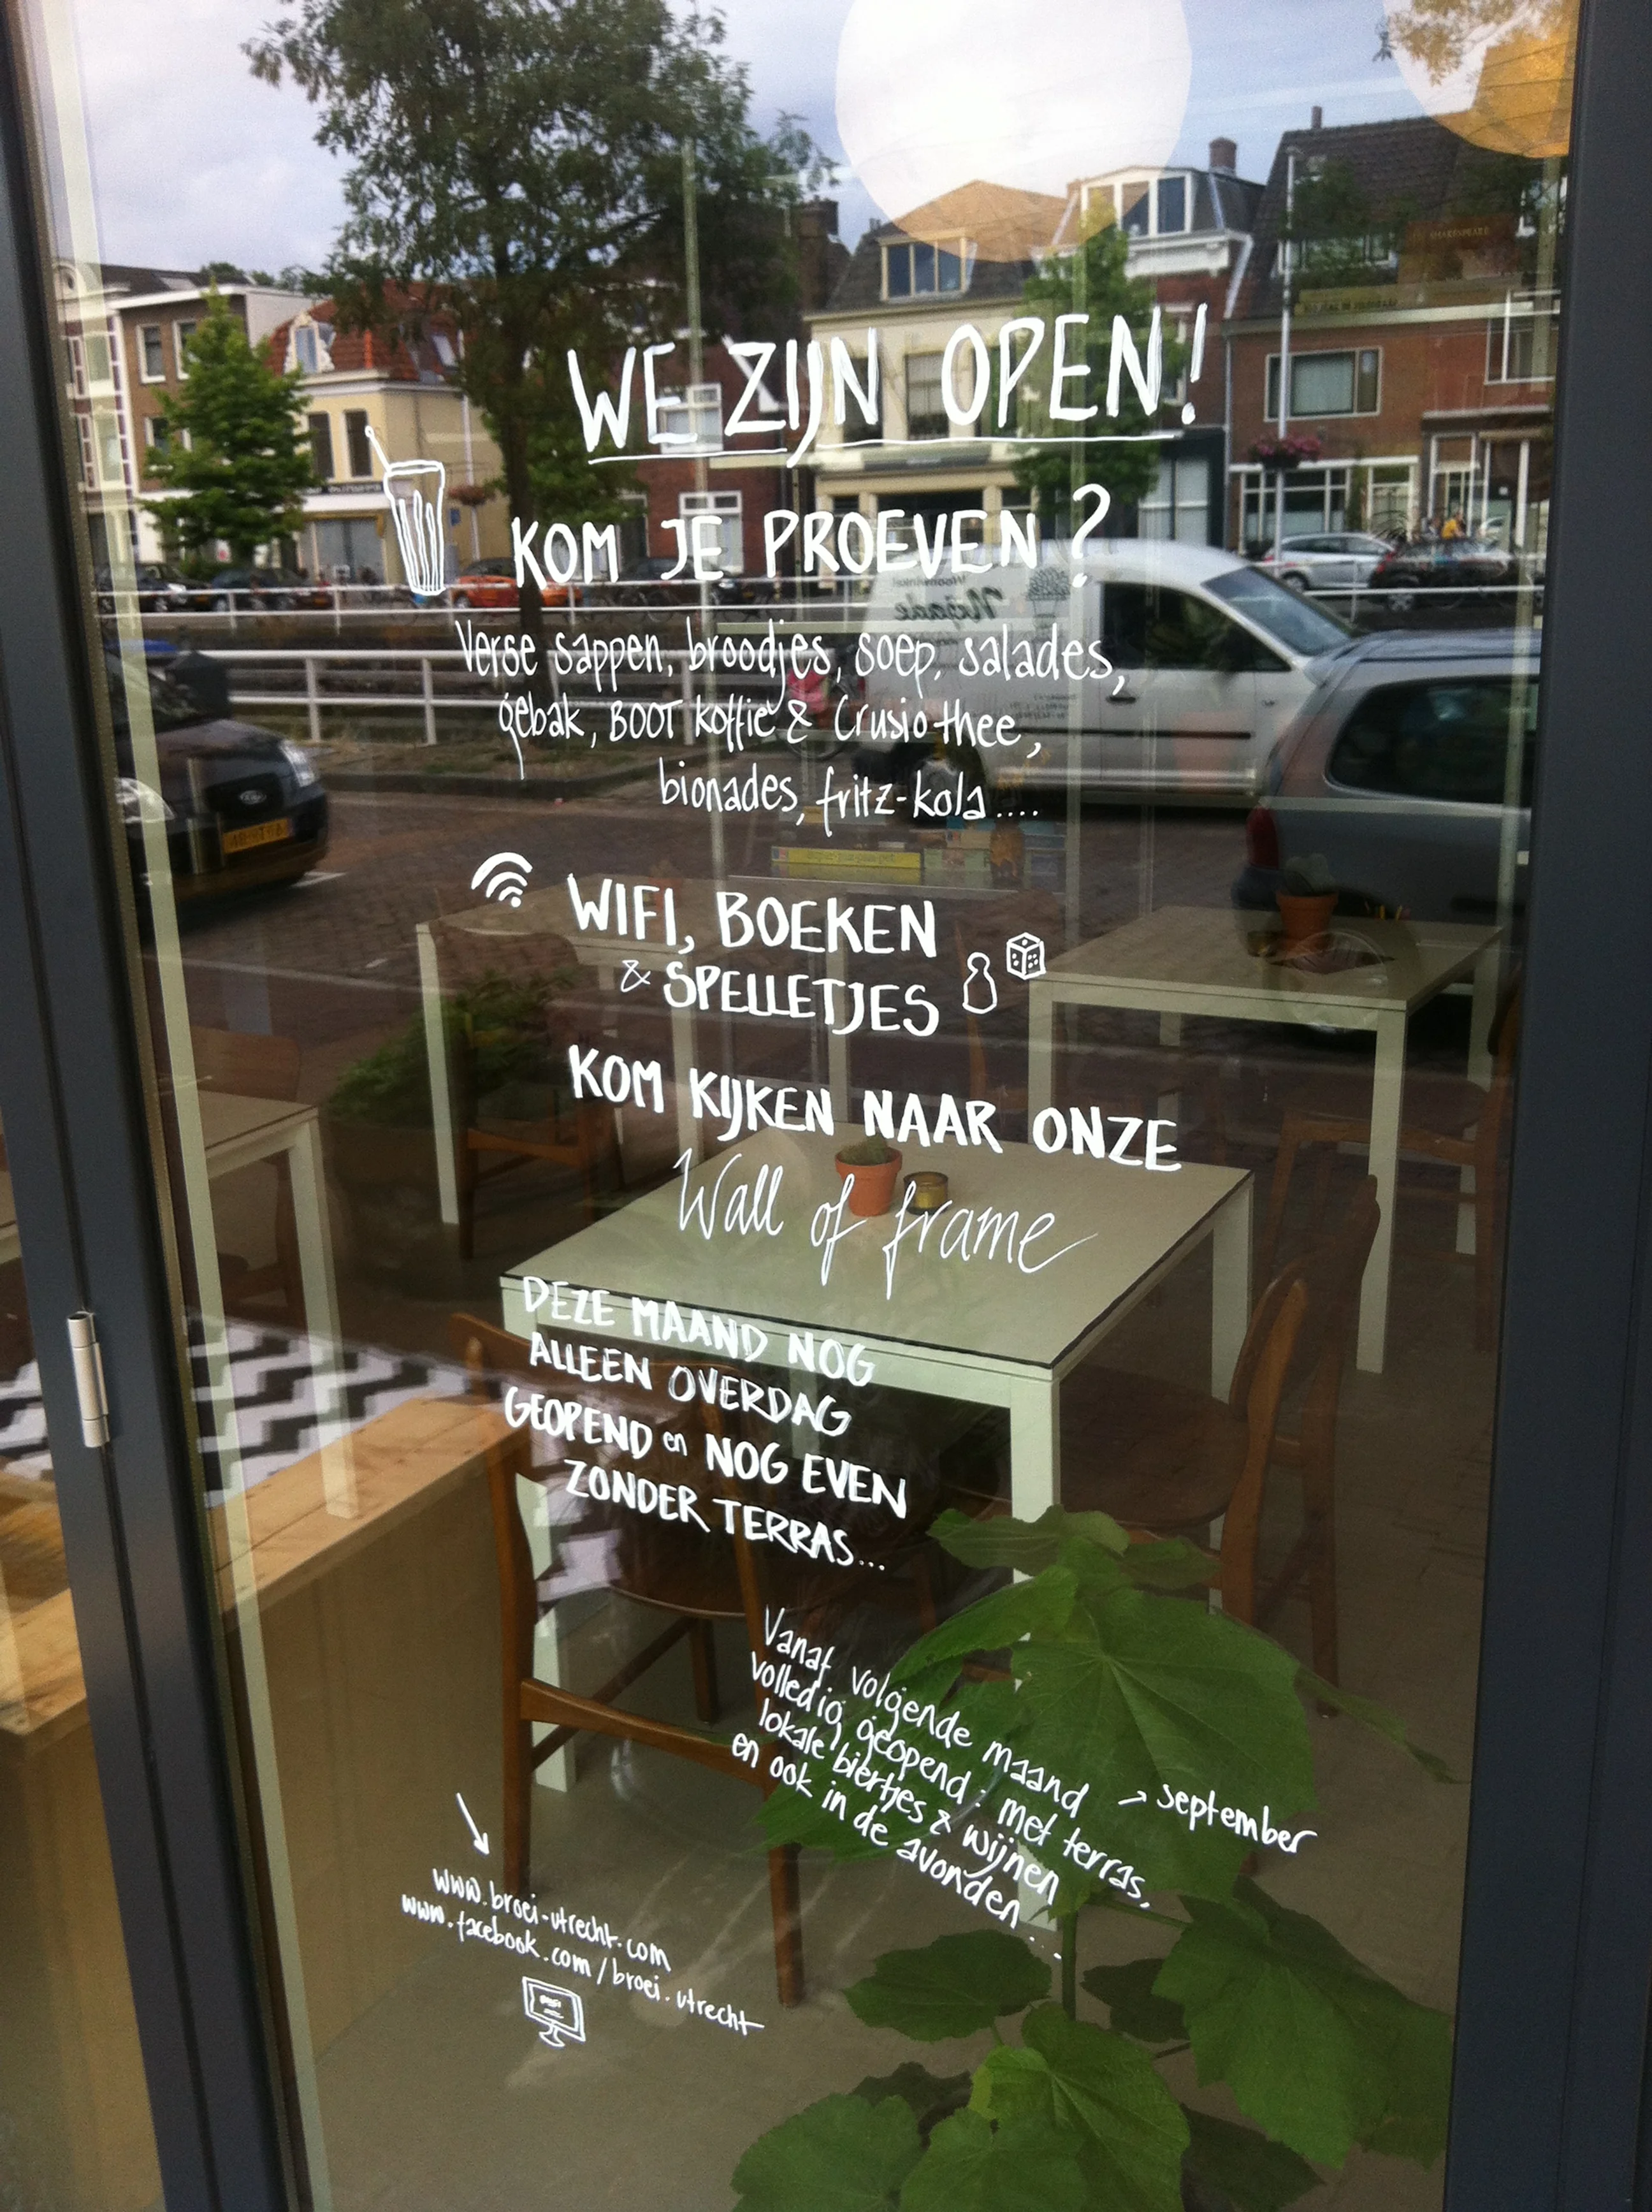 WE ZIJN OPEN!
KOM JE PROEVEN?
Verse sappen, broodjes, soep, salades,
gebak, BOOT koffie & Crusio thee,
bionades, fritz-kola....
WIFI, BOEKEN
& SPELLETJES
KOM KIJKEN NAAR ONZE
Wall of frame
DEZE MAAND NOG
ALLEEN OVERDAG
GEOPEND en NOG EVEN
ZONDER TERRAS...
Vanaf volgende maand → september
volledig geopend: met terras,
lokale biertjes & wijnen
en ook in de avonden...
www.broei-utrecht.com
www.facebook.com/broei.utrecht